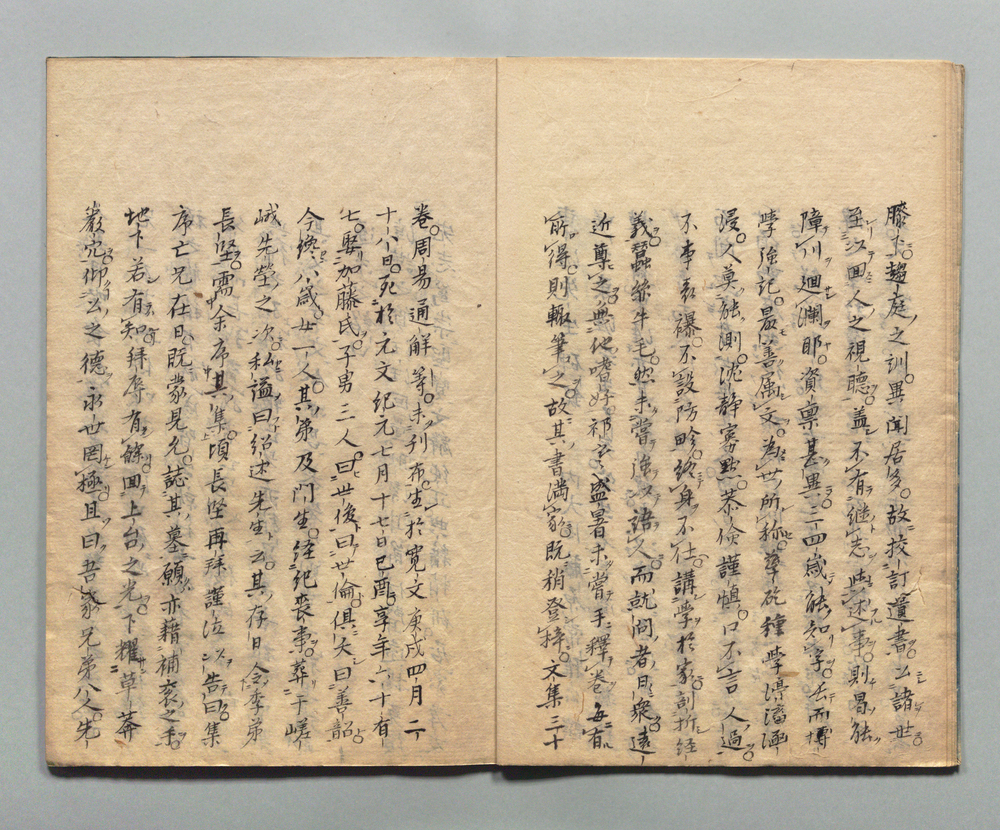 膝下趨庭之訓異聞居多故挍訂遺書公諸世
至以回人之視聽盖不有継志述事則曷能
障川廻瀾耶資禀甚異三四歳能知字去而博
學強記最善属文為世所称卒於種學渟滀涵
浸人莫能測沈静寡黙恭倹謹慎口不言人過
不事表襮不設防畛終身不仕講學於家剖析経
義蠶絲牛毛然未嘗強以語人而就問者日衆遠
近尊之無他嗜好祁寒盛暑未嘗手釋巻毎有
所得則輙筆之故其書満家既稍登梓文集三十
巻周易通解等未刊布生於寛文庚戌四月二
十八日死於元文紀元七月十七日己酉享年六十有
七娶加藤氏子男三人曰世後曰世倫倶夭曰善韶
今終八歳女一人其弟及門生経紀喪事葬于嵯
峨先塋之次私謚曰紹述先生云其存日令季弟
長堅需余序其集頃長堅再拜謹泣告曰集
序亡兄在日既蒙見允誌其墓願亦藉補衮之手
地下若有知拜辱有餘回上台之光下耀草莽
巌穴仰公之德永世罔極且曰吾家兄弟八人先